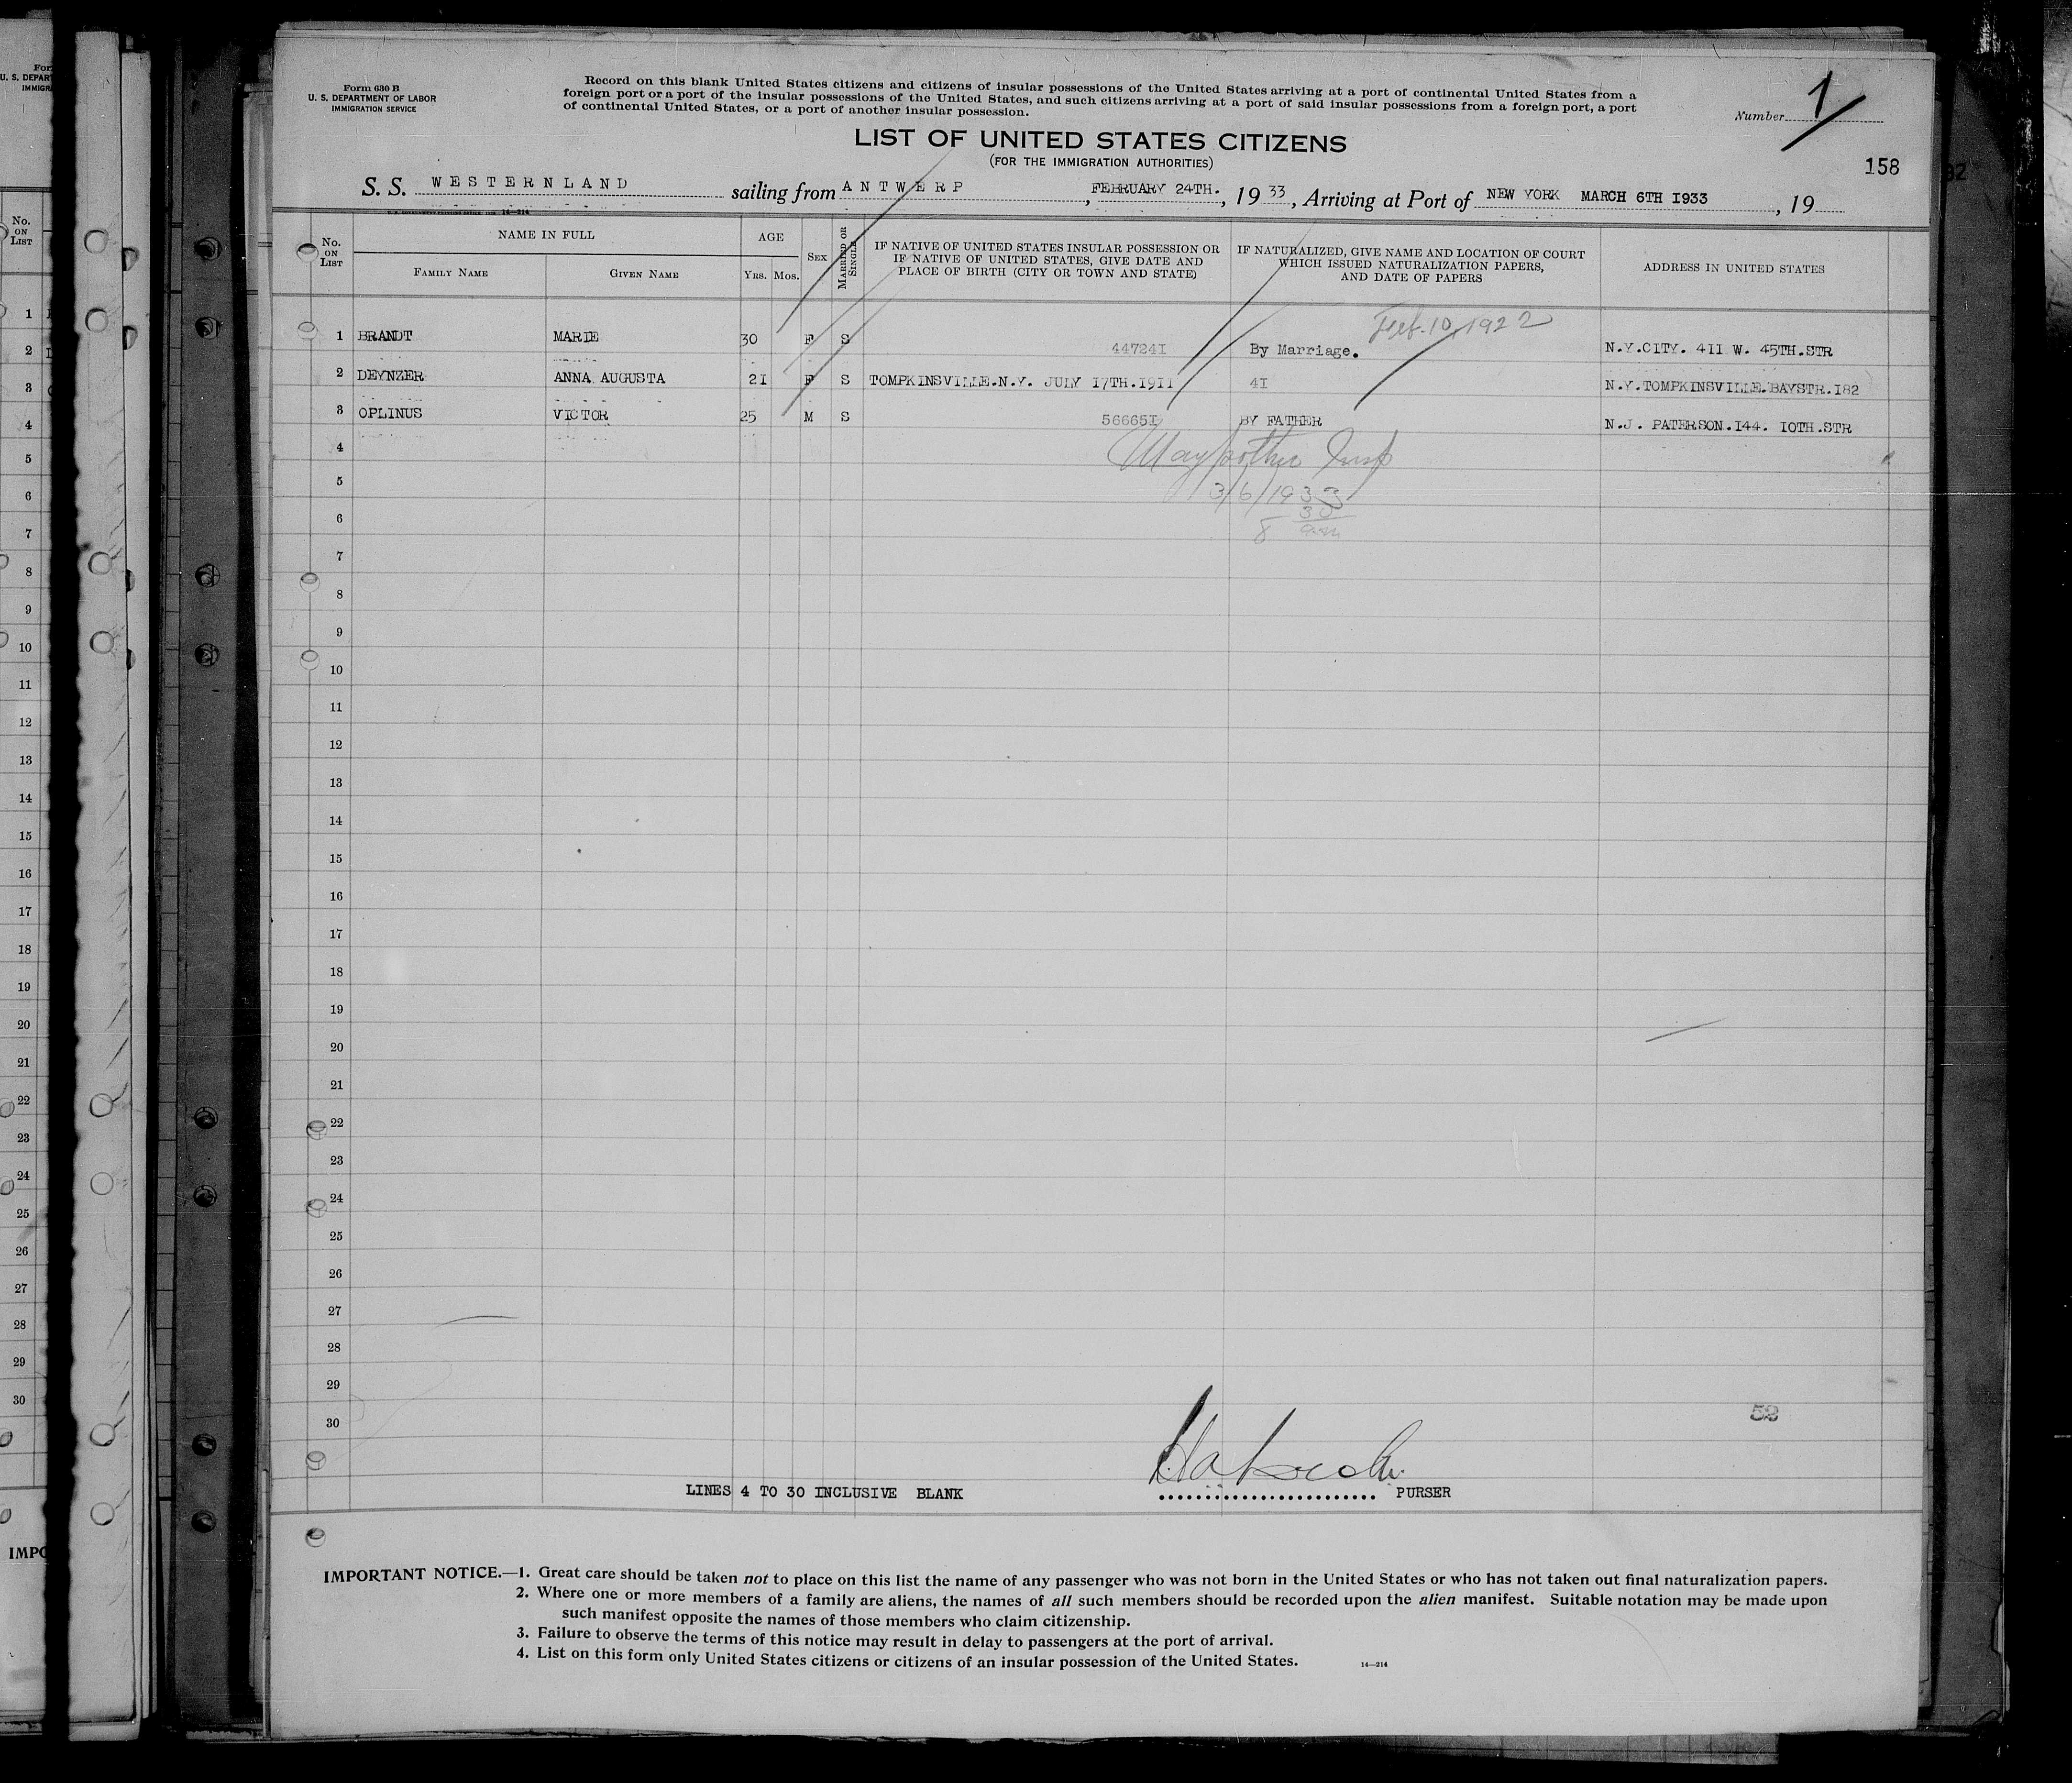 Form 630 B
U. S. DEPARTMENT OF LABOR
IMMIGRATION SERVICE
Record on this blank United States citizens and citizens of insular possessions of the United States arriving at a port of continental United States from a
foreign port or a port of the insular possessions of the United States, and such citizens arriving at a port of said insular possessions from a foreign port, a port
of continental United States, or a port of another insular possession.
Number 1
LIST OF UNITED STATES CITIZENS
(FOR THE IMMIGRATION AUTHORITIES)
158
S. S. WESTERNLAND sailing from ANTWERP, FEBRUARY 24TH., 19 33, Arriving at Port of NEW YORK MARCH 6TH I933, 19
No. ON LIST
NAME IN FULL
FAMILY NAME
GIVEN NAME
AGE
YRS. MOS.
SEX
MARRIED OR SINGLE
IF NATIVE OF UNITED STATES INSULAR POSSESSION OR
IF NATIVE OF UNITED STATES, GIVE DATE AND
PLACE OF BIRTH (CITY OR TOWN AND STATE)
IF NATURALIZED, GIVE NAME AND LOCATION OF COURT
WHICH ISSUED NATURALIZATION PAPERS,
AND DATE OF PAPERS
ADDRESS IN UNITED STATES
Feb. 10, 1922
1 BRANDT MARIE 30 F S 44724I By Marriage. N.Y.CITY. 4II W. 45TH.STR
2 DEYNZER ANNA AUGUSTA 2I F S TOMPKINSVILLE.N.Y. JULY I7TH.I9II 4I N.Y.TOMPKINSVILLE.BAYSTR.I82
3 OPLINUS VICTOR 25 M S 56665I BY FATHER N.J. PATERSON.I44. IOTH.STR
4
Insp
5
3/6/1933
6
8 30 am
7
8
9
10
11
12
13
14
15
16
17
18
19
20
21
22
23
24
25
26
27
28
29
30
52
LINES 4 TO 30 INCLUSIVE BLANK
PURSER
IMPORTANT NOTICE.—1. Great care should be taken not to place on this list the name of any passenger who was not born in the United States or who has not taken out final naturalization papers.
2. Where one or more members of a family are aliens, the names of all such members should be recorded upon the alien manifest. Suitable notation may be made upon
such manifest opposite the names of those members who claim citizenship.
3. Failure to observe the terms of this notice may result in delay to passengers at the port of arrival.
4. List on this form only United States citizens or citizens of an insular possession of the United States.
14—214